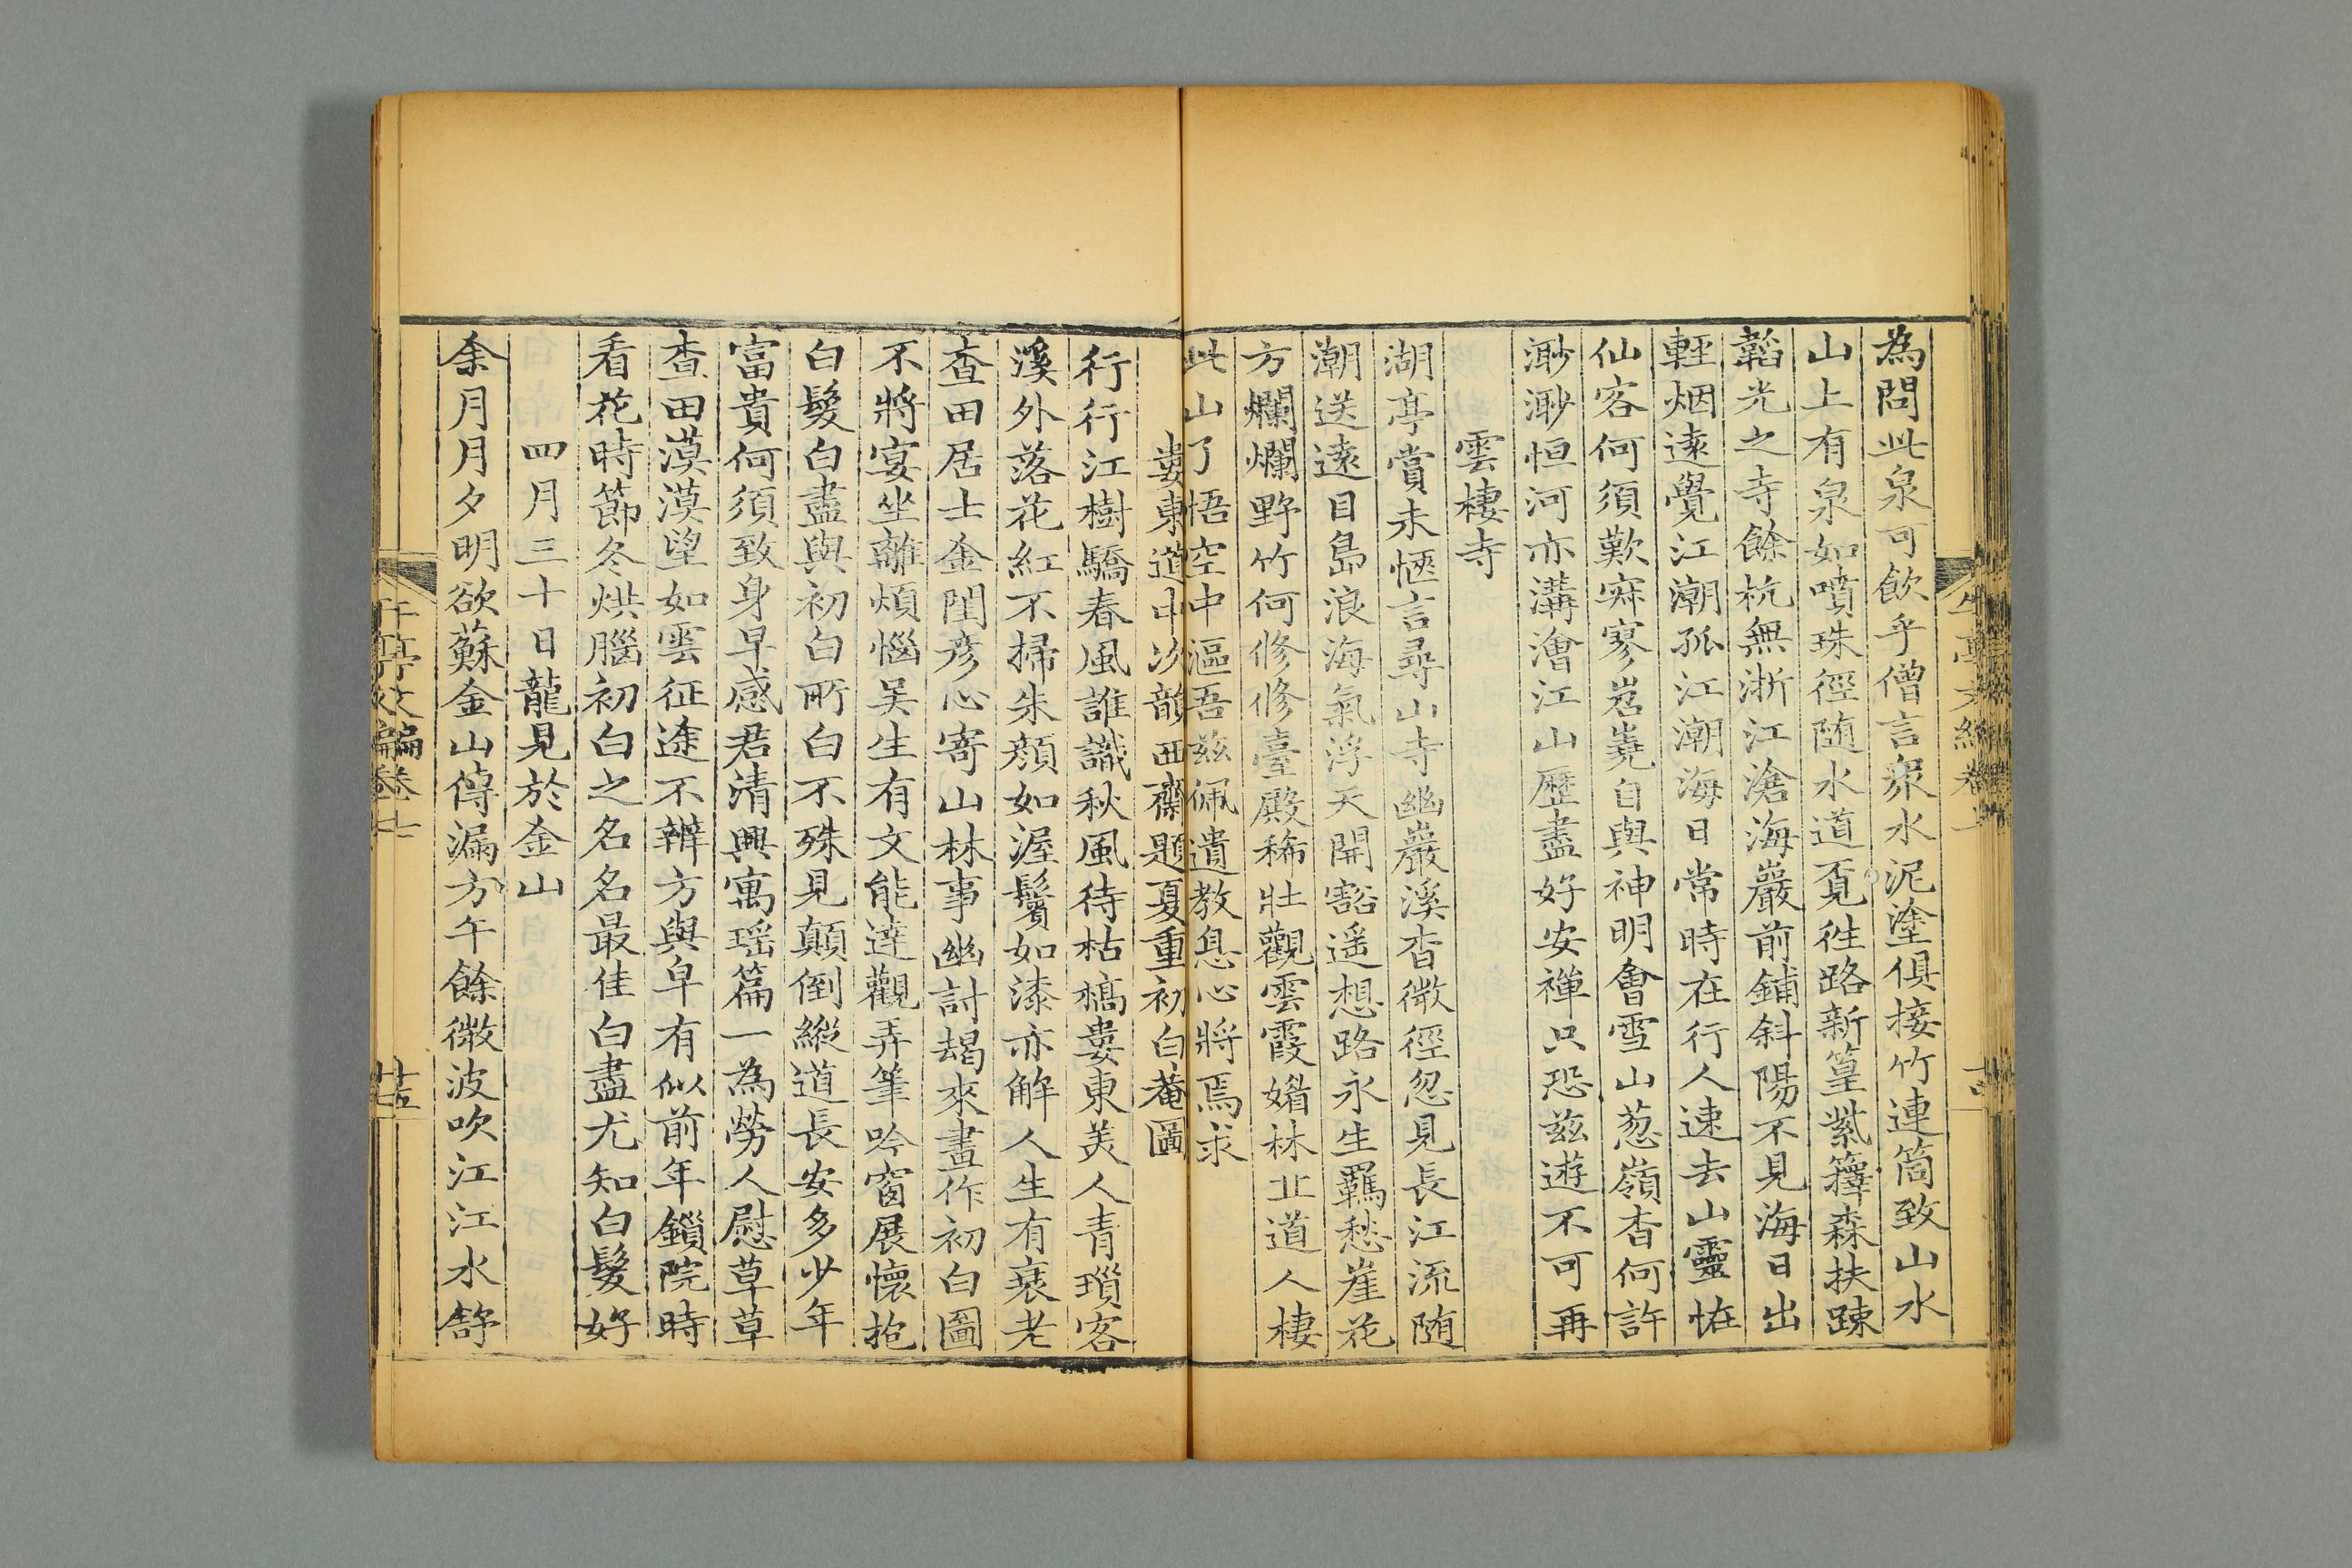 為問此泉可飲乎僧言衆水泥塗俱接竹連筒致山水
山上有泉如噴珠徑随水道覔徃路新篁紫籜森扶踈
韜光之寺餘杭無浙江滄海巖前鋪斜陽不見海日出
輕烟逺覺江潮孤江潮海日常時在行人速去山靈恠
仙客何須歎㝕寥岧嶤自與神明會雪山葱嶺杳何許
渺渺恒河亦溝澮江山歷盡好安禪只恐兹遊不可再
雲棲寺
湖亭賞未愜言尋山寺幽巖溪杳微徑忽見長江流随
潮送逺目島浪海氣浮天開豁遥想路永生羈愁崖花
方爛爛野竹何修修臺殿稀壯觀雲霞媚林丘道人棲
此山了悟空中漚吾兹佩遺教息心將焉求
婁東道中次韻西齋題夏重初白菴圖
行行江樹驕春風誰識秋風待枯槁婁東美人青瑣客
溪外落花紅不掃朱顔如渥鬢如漆亦解人生有衰老
查田居士金閨彦心寄山林事幽討朅來畫作初白圖
不將宴坐離煩惱吴生有文能達觀弄筆吟窗展懷抱
白髮白盡與初白所白不殊見顛倒縱道長安多少年
富貴何須致身早感君清興寓瑶篇一為勞人慰草草
查田漠漠望如雲征途不辨方與皁有似前年鎖院時
看花時節冬烘腦初白之名名最佳白盡尤知白髮好
四月三十日龍見於金山
余月月夕明欲蘇金山傳漏方午餘微波吹江江水舒
亭文編卷七
廿五